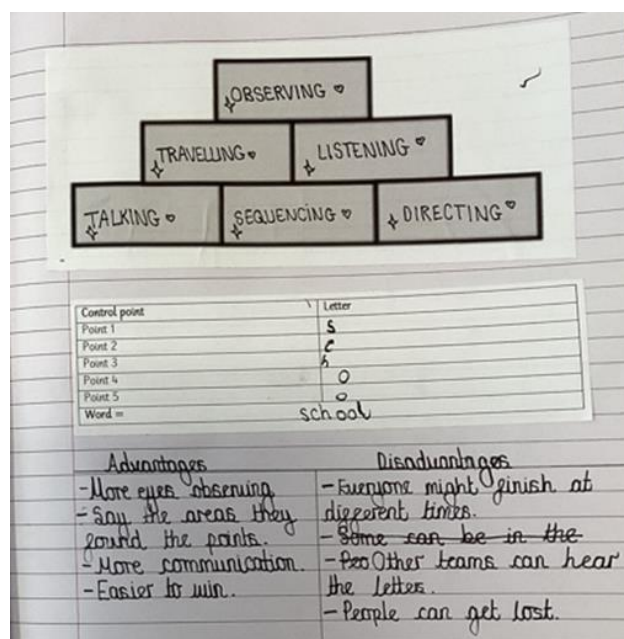 OBSERVING
TRAVELLING LISTENING
TALKING SEQUENCING DIRECTING
Control point Letter
Point 1 s
Point 2 c
Point 3 h
Point 4 o
Point 5 o
Word = school
Advantages
- More eyes observing
- Say the areas they
found the points.
- More communication.
- Easier to win.
Disadvantages
- Everyone might finish at
different times.
- Some can be in the
- Peo Other teams can hear
the letter.
- People can get lost.